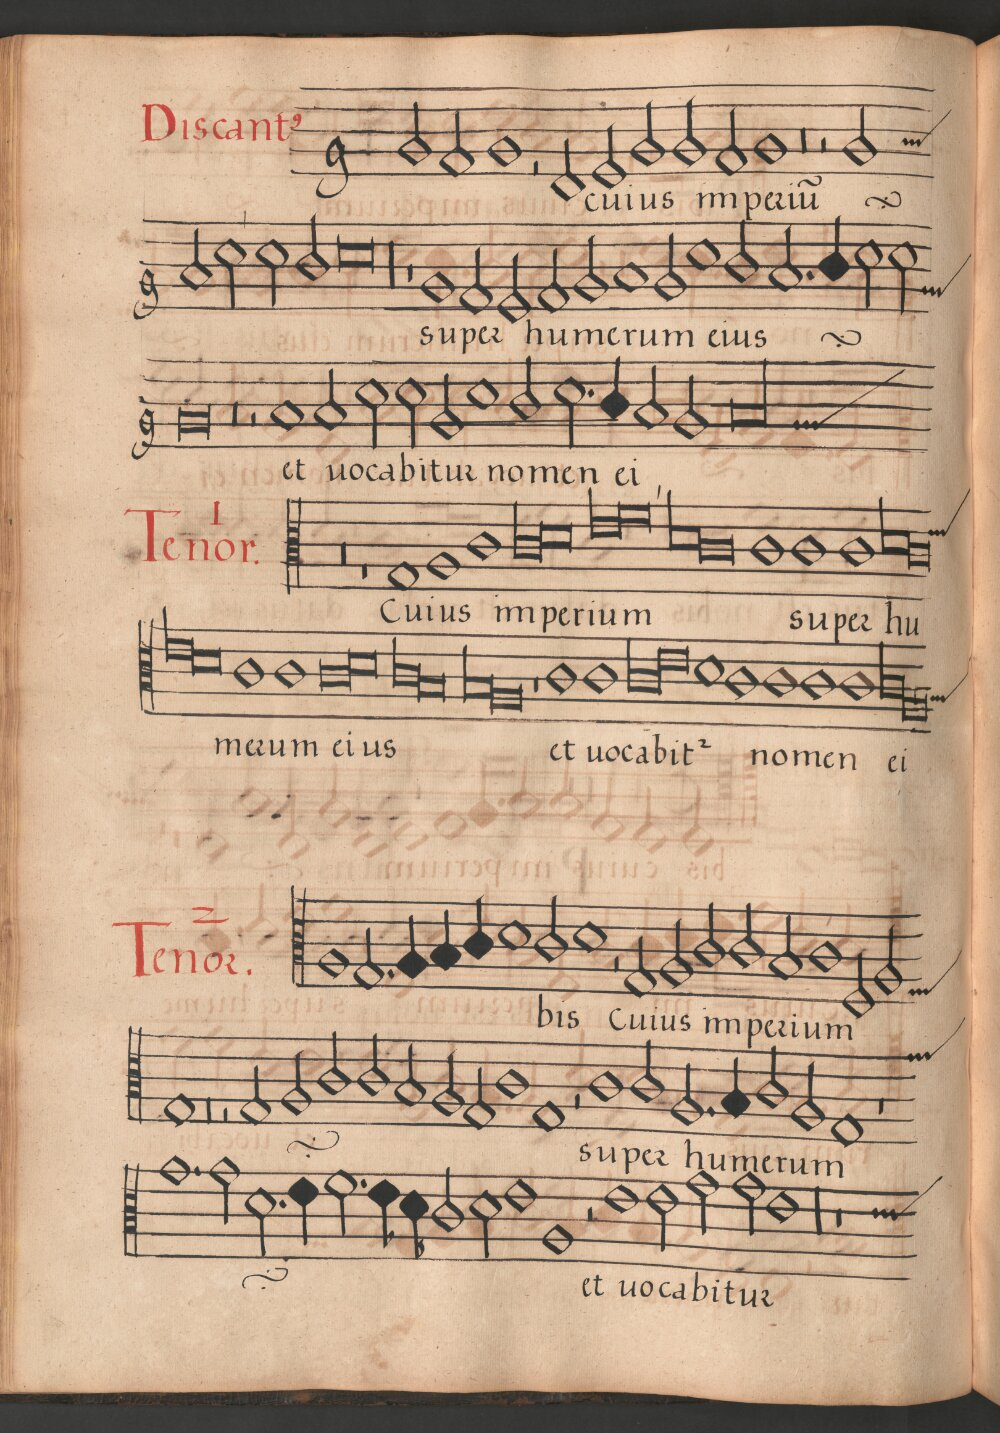 Discantꝰ
cuius imperiũ
super humerum eius
et uocabitur nomen ei
Tenor. 1
Cuius imperium super hu
merum eius et uocabit² nomen ei
Tenor. 2
bis Cuius imperium
super humerum
et uocabitur